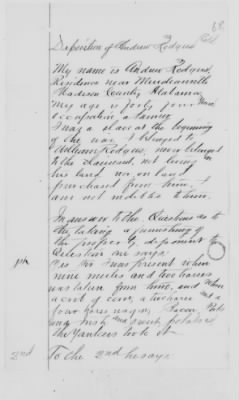 Deposition of Andrew Rodgers
My name is Andrew Rodgers
Residence near
Madison County Alabama
My age is forty four years
Occupation, a farmer
I was a slave at the beginning
of the war. I belonged to
William Rodgers, never belonged
to the claimant, not living on
his land, nor on land
purchased from him, I
am not indebted to him.
In answer to the Questions as to
the taking or furnishing of
the property, deponent to
Question one says:
Yes Sir I was present when
nine mules and two horses
was taken from him, and when
a crib of corn, a two horse and a
four horse wagon, Bacon,
and sweet potatoes
the Yankees took it.
2nd To the 2nd he says.